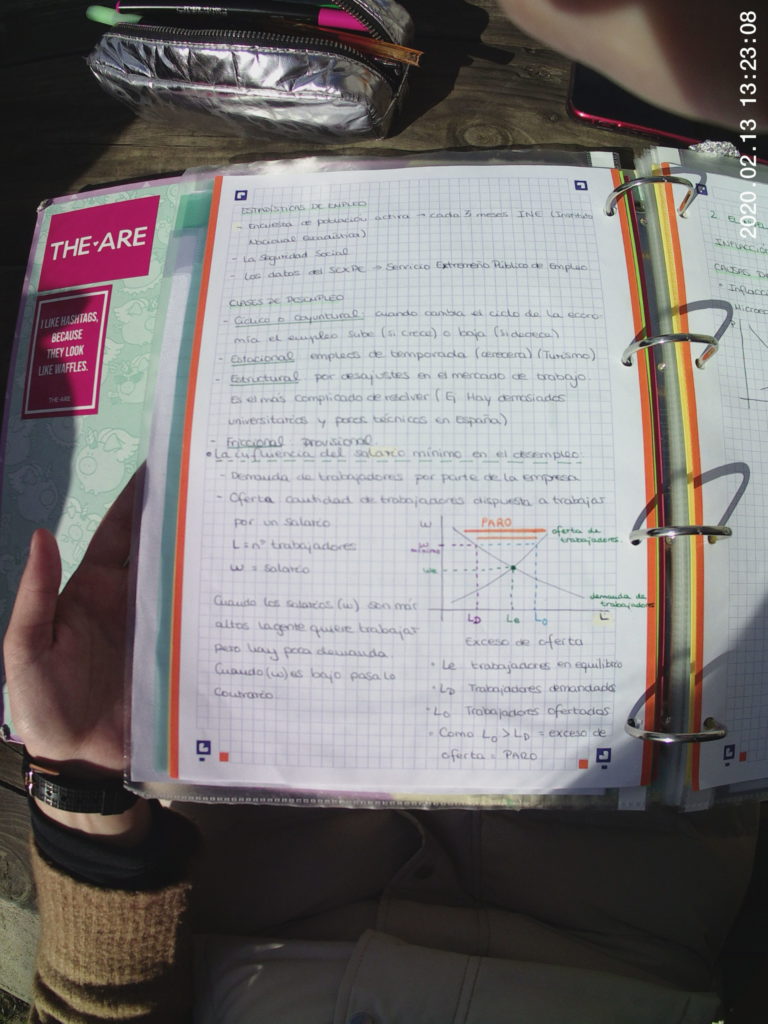 2020.02.13 13:23:08
THE·ARE
I LIKE HASHTAGS,
BECAUSE
THEY LOOK
LIKE WAFFLES.
THE·ARE
ESTADÍSTICAS DE EMPLEO
- Encuesta de población activa → cada 3 meses INE (Instituto
Nacional Estadística)
- La Seguridad Social
- Los datos del SEXPE → Servicio Extremeño Público de Empleo
CLASES DE DESEMPLEO
- Cíclico o coyuntural: cuando cambia el ciclo de la econo-
mía el empleo sube (si crece) o baja (si decrece)
- Estacional empleos de temporada (cerecera) (Turismo)
- Estructural por desajustes en el mercado de trabajo.
Es el más complicado de resolver (Ej Hay demasiados
universitarios y pocos técnicos en España)
- Friccional provisional.
• La influencia del salario mínimo en el desempleo
- Demanda de trabajadores por parte de la empresa
- Oferta cantidad de trabajadores dispuesta a trabajar
por un salario
L = nº trabajadores
w = salario
Cuando los salarios (w) son más
altos la gente quiere trabajar
pero hay poca demanda.
Cuando (w) es bajo pasa lo
contrario
w
PARO
oferta de
trabajadores.
w
mínimo
we
demanda de
trabajadores
LD Le LO L
Exceso de oferta
• Le trabajadores en equilibrio
• LD Trabajadores demandados
• LO Trabajadores ofertados
- Como LO > LD = exceso de
oferta = PARO
2.
INFLACIÓN
CAUSAS
• Inflac